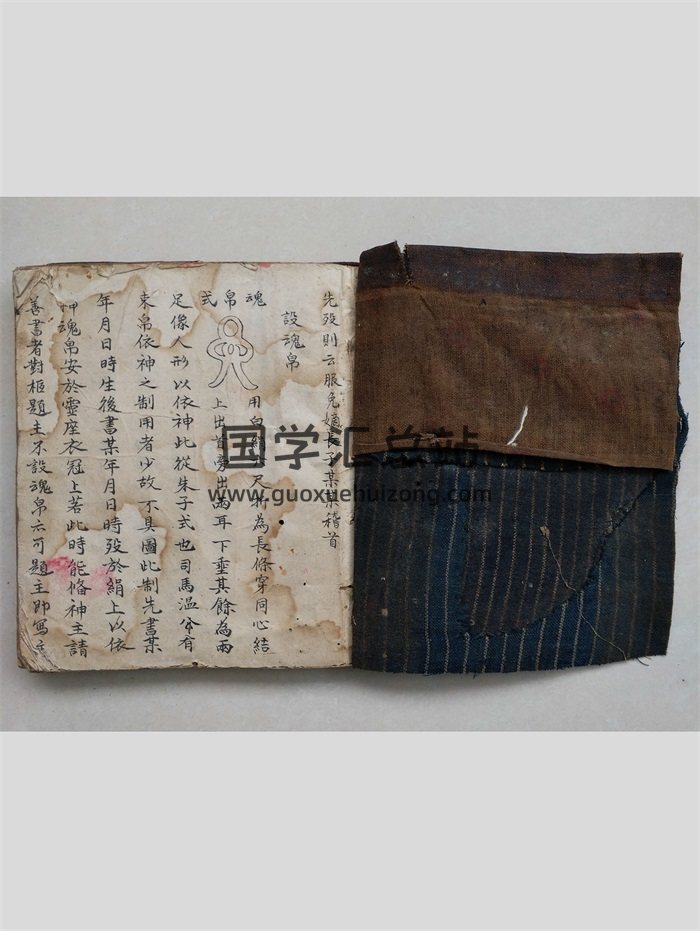 先歿則云服免嫡長子某某稽首
設魂帛
魂帛式
用白絹尺折為長條穿同心結
上出首旁出兩耳下垂其餘為兩
足像人形以依神此從朱子式也司馬溫公有
束帛依神之制用者少故不具圖此制先書某
年月日時生後書某年月日時歿於絹上以依
神魂帛安於靈座衣冠上若此時能俻神主請
善書者對柩題主不設魂帛亦可題主師寫
国学汇总站
www.guoxuehuizong.com